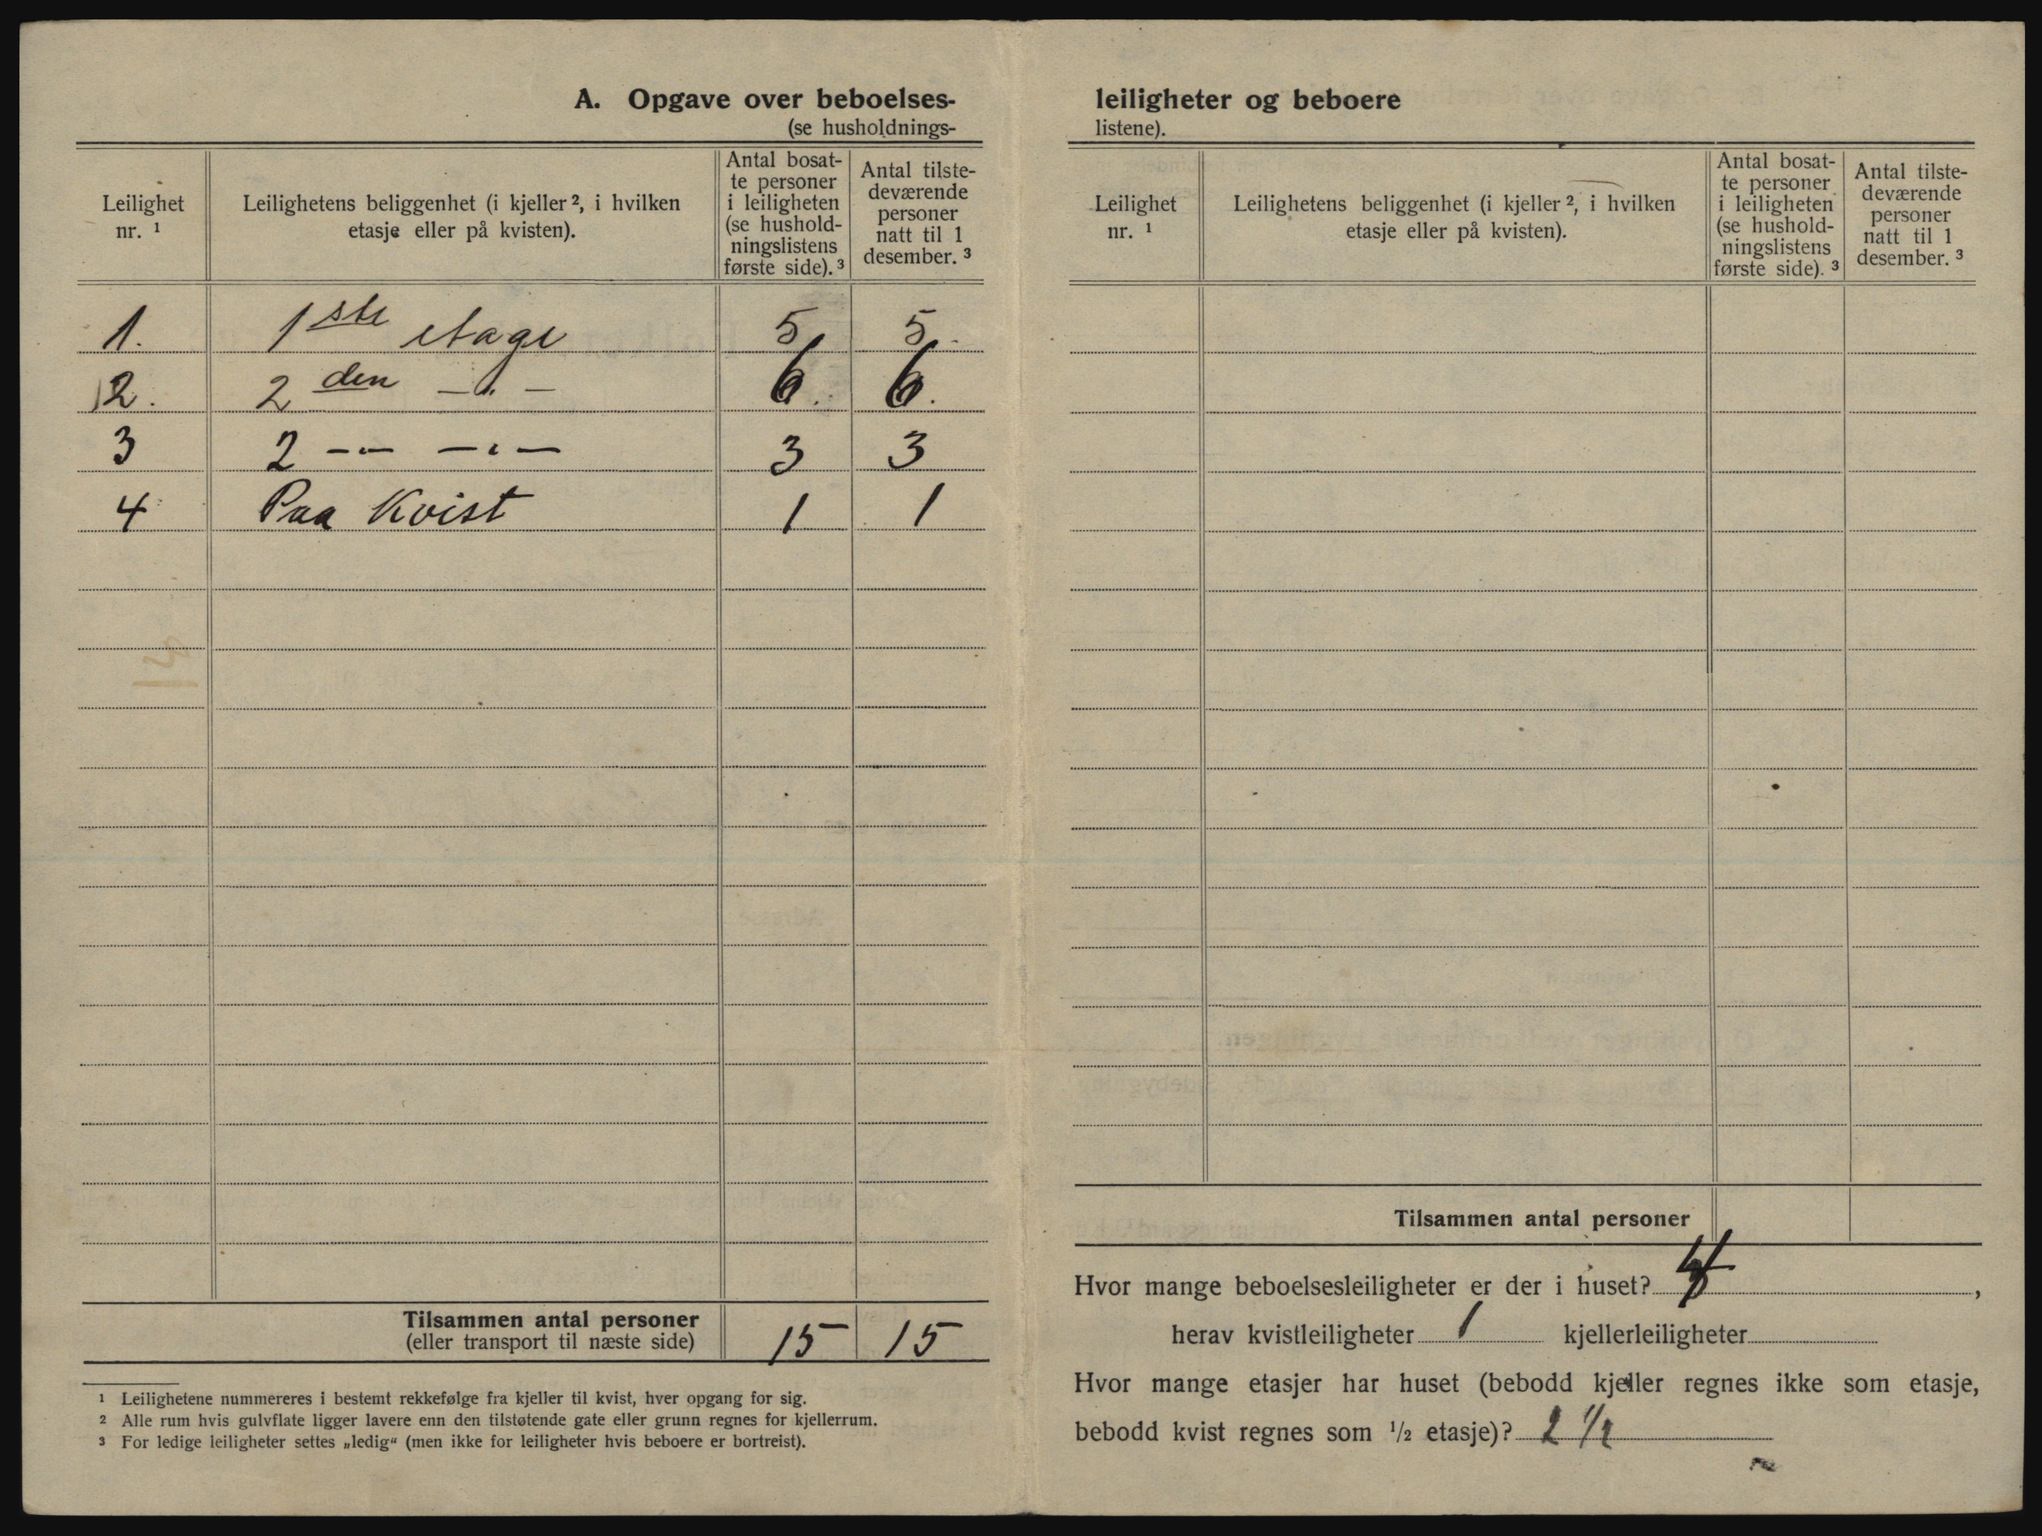 A. Opgave over beboelses-
(se husholdnings-
Leilighet
nr. ¹
Leilighetens beliggenhet (i kjeller ², i hvilken
etasje eller på kvisten).
Antal bosat-
te personer
i leiligheten
(se hushold-
ningslistens
første side). ³
Antal tilste-
deværende
personer
natt til 1
desember. ³
1. 1ste etage 5 5.
2. 2 den — " — 6. 6.
3 2 -"- — " — 3 3
4 Paa Kvist 1 1
Tilsammen antal personer
(eller transport til næste side)
15 15
¹ Leilighetene nummereres i bestemt rekkefølge fra kjeller til kvist, hver opgang for sig.
² Alle rum hvis gulvflate ligger lavere enn den tilstøtende gate eller grunn regnes for kjellerrum.
³ For ledige leiligheter settes „ledig“ (men ikke for leiligheter hvis beboere er bortreist).
leiligheter og beboere
listene).
Leilighet
nr. ¹
Leilighetens beliggenhet (i kjeller ², i hvilken
etasje eller på kvisten).
Antal bosat-
te personer
i leiligheten
(se hushold-
ningslistens
første side). ³
Antal tilste-
deværende
personer
natt til 1
desember. ³
Tilsammen antal personer
Hvor mange beboelsesleiligheter er der i huset? 4,
herav kvistleiligheter 1 kjellerleiligheter
Hvor mange etasjer har huset (bebodd kjeller regnes ikke som etasje,
bebodd kvist regnes som ½ etasje)? 2 ½